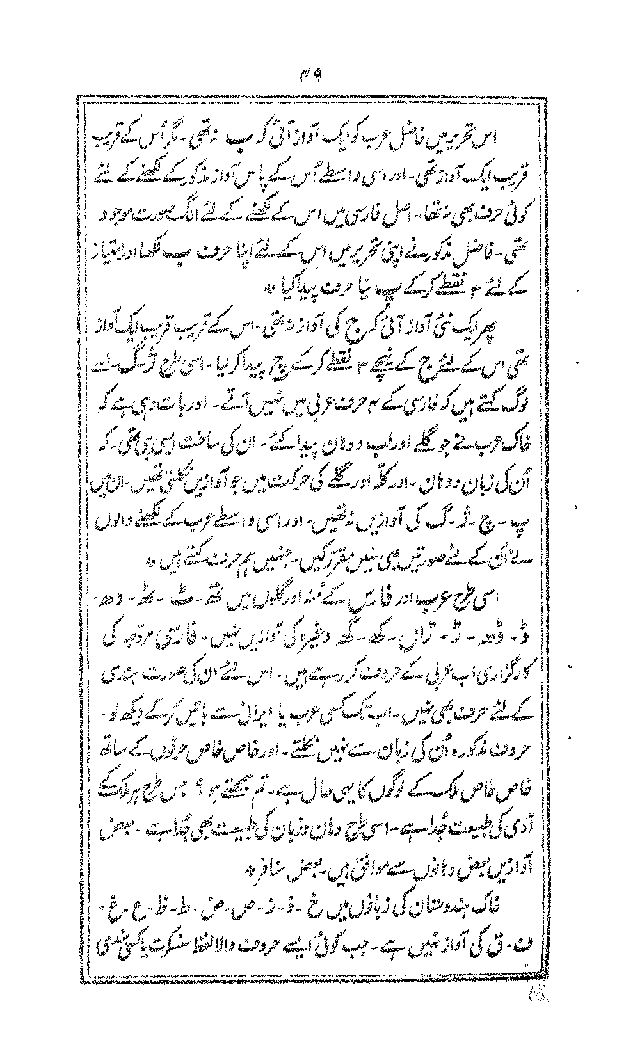 ۳۹
اس تحریر میں فاضل عرب کو ایک آواز آئی کہ پ نہ تھی۔ مگر اُس کے قریب
قریب ایک آواز تھی۔ اور اسی واسطے اُس کے پاس آواز مذکور کے لکھنے کے لئے
کوئی حرف بھی نہ تھا۔ اصل فارسی میں اس کے لکھنے کے لئے الگ صورت موجود
تھی۔ فاضل مذکور نے اپنی تحریر میں اس کے لئے اپنا حرف ب لکھا اور امتیاز
کے لئے ۳ نقطے کر کے پ نیا حرف پیدا کیا ٭
پھر ایک نئی آواز آئی کہ ج کی آواز نہ تھی۔ اس کے قریب قریب ایک آواز
تھی اس کے لئے ج کے نیچے ۳ نقطے کر کے چ پیدا کر لیا۔ اسی طرح ژ۔ گ۔ اسے
لوگ کہتے ہیں کہ فارسی کے ۴ حرف عربی میں نہیں آتے۔ اور بات وہی ہے کہ
خاک عرب نے جو گلے اور لب و دہان پیدا کئے۔ ان کی ساخت ایسی ہی تھی۔ کہ
اُن کی زبان و دہان۔ اور کلّہ اور گلے کی حرکت میں جو آوازیں نکلتی تھیں۔ ان میں
پ۔ چ۔ ژ۔ گ کی آوازیں نہ تھیں۔ اور اسی واسطے عرب کے لکھنے والوں
نے اُن کے لئے صورتیں بھی نہیں مقرر کیں۔ جنہیں ہم حرف کہتے ہیں ٭
اسی طرح عرب اور فارس کے مُنہ اور گلوں میں تھ۔ ٹ۔ ٹھ۔ دھ۔
ڈ۔ ڈھ۔ ڑ۔ کھ۔ گھ وغیرہ کی آوازیں نہیں۔ فارسی مروجہ کی
کارگزاری اب عربی کے حروف کر رہے ہیں۔ اس لئے ان کی صورت بندی
کے لئے حرف بھی نہیں۔ اب تک کسی عرب یا ایرانی سے باتیں کر کے دیکھ لو۔
حروف مذکورہ اُن کی زبان سے نہیں نکلتے۔ اور خاص خاص حرفوں کے ساتھ
خاص خاص ملک کے لوگوں کا یہی حال ہے۔ تم سمجھتے ہو؟ جس طرح ہر ملک کے
آدمی کی طبیعت جُدا ہے۔ اسی طرح دہان و زبان کی طبیعت بھی جُدا ہے۔ بعض
آوازیں بعض دہانوں سے موافق ہیں۔ بعض منافر ٭
خاک ہندوستان کی زبانوں میں خ۔ ذ۔ ز۔ ص۔ ض۔ ط۔ ظ۔ ع۔ غ۔
ف۔ ق کی آواز نہیں ہے۔ جب کوئی ایسے حروف والا لفظ سنسکرت یا کسی ہندی